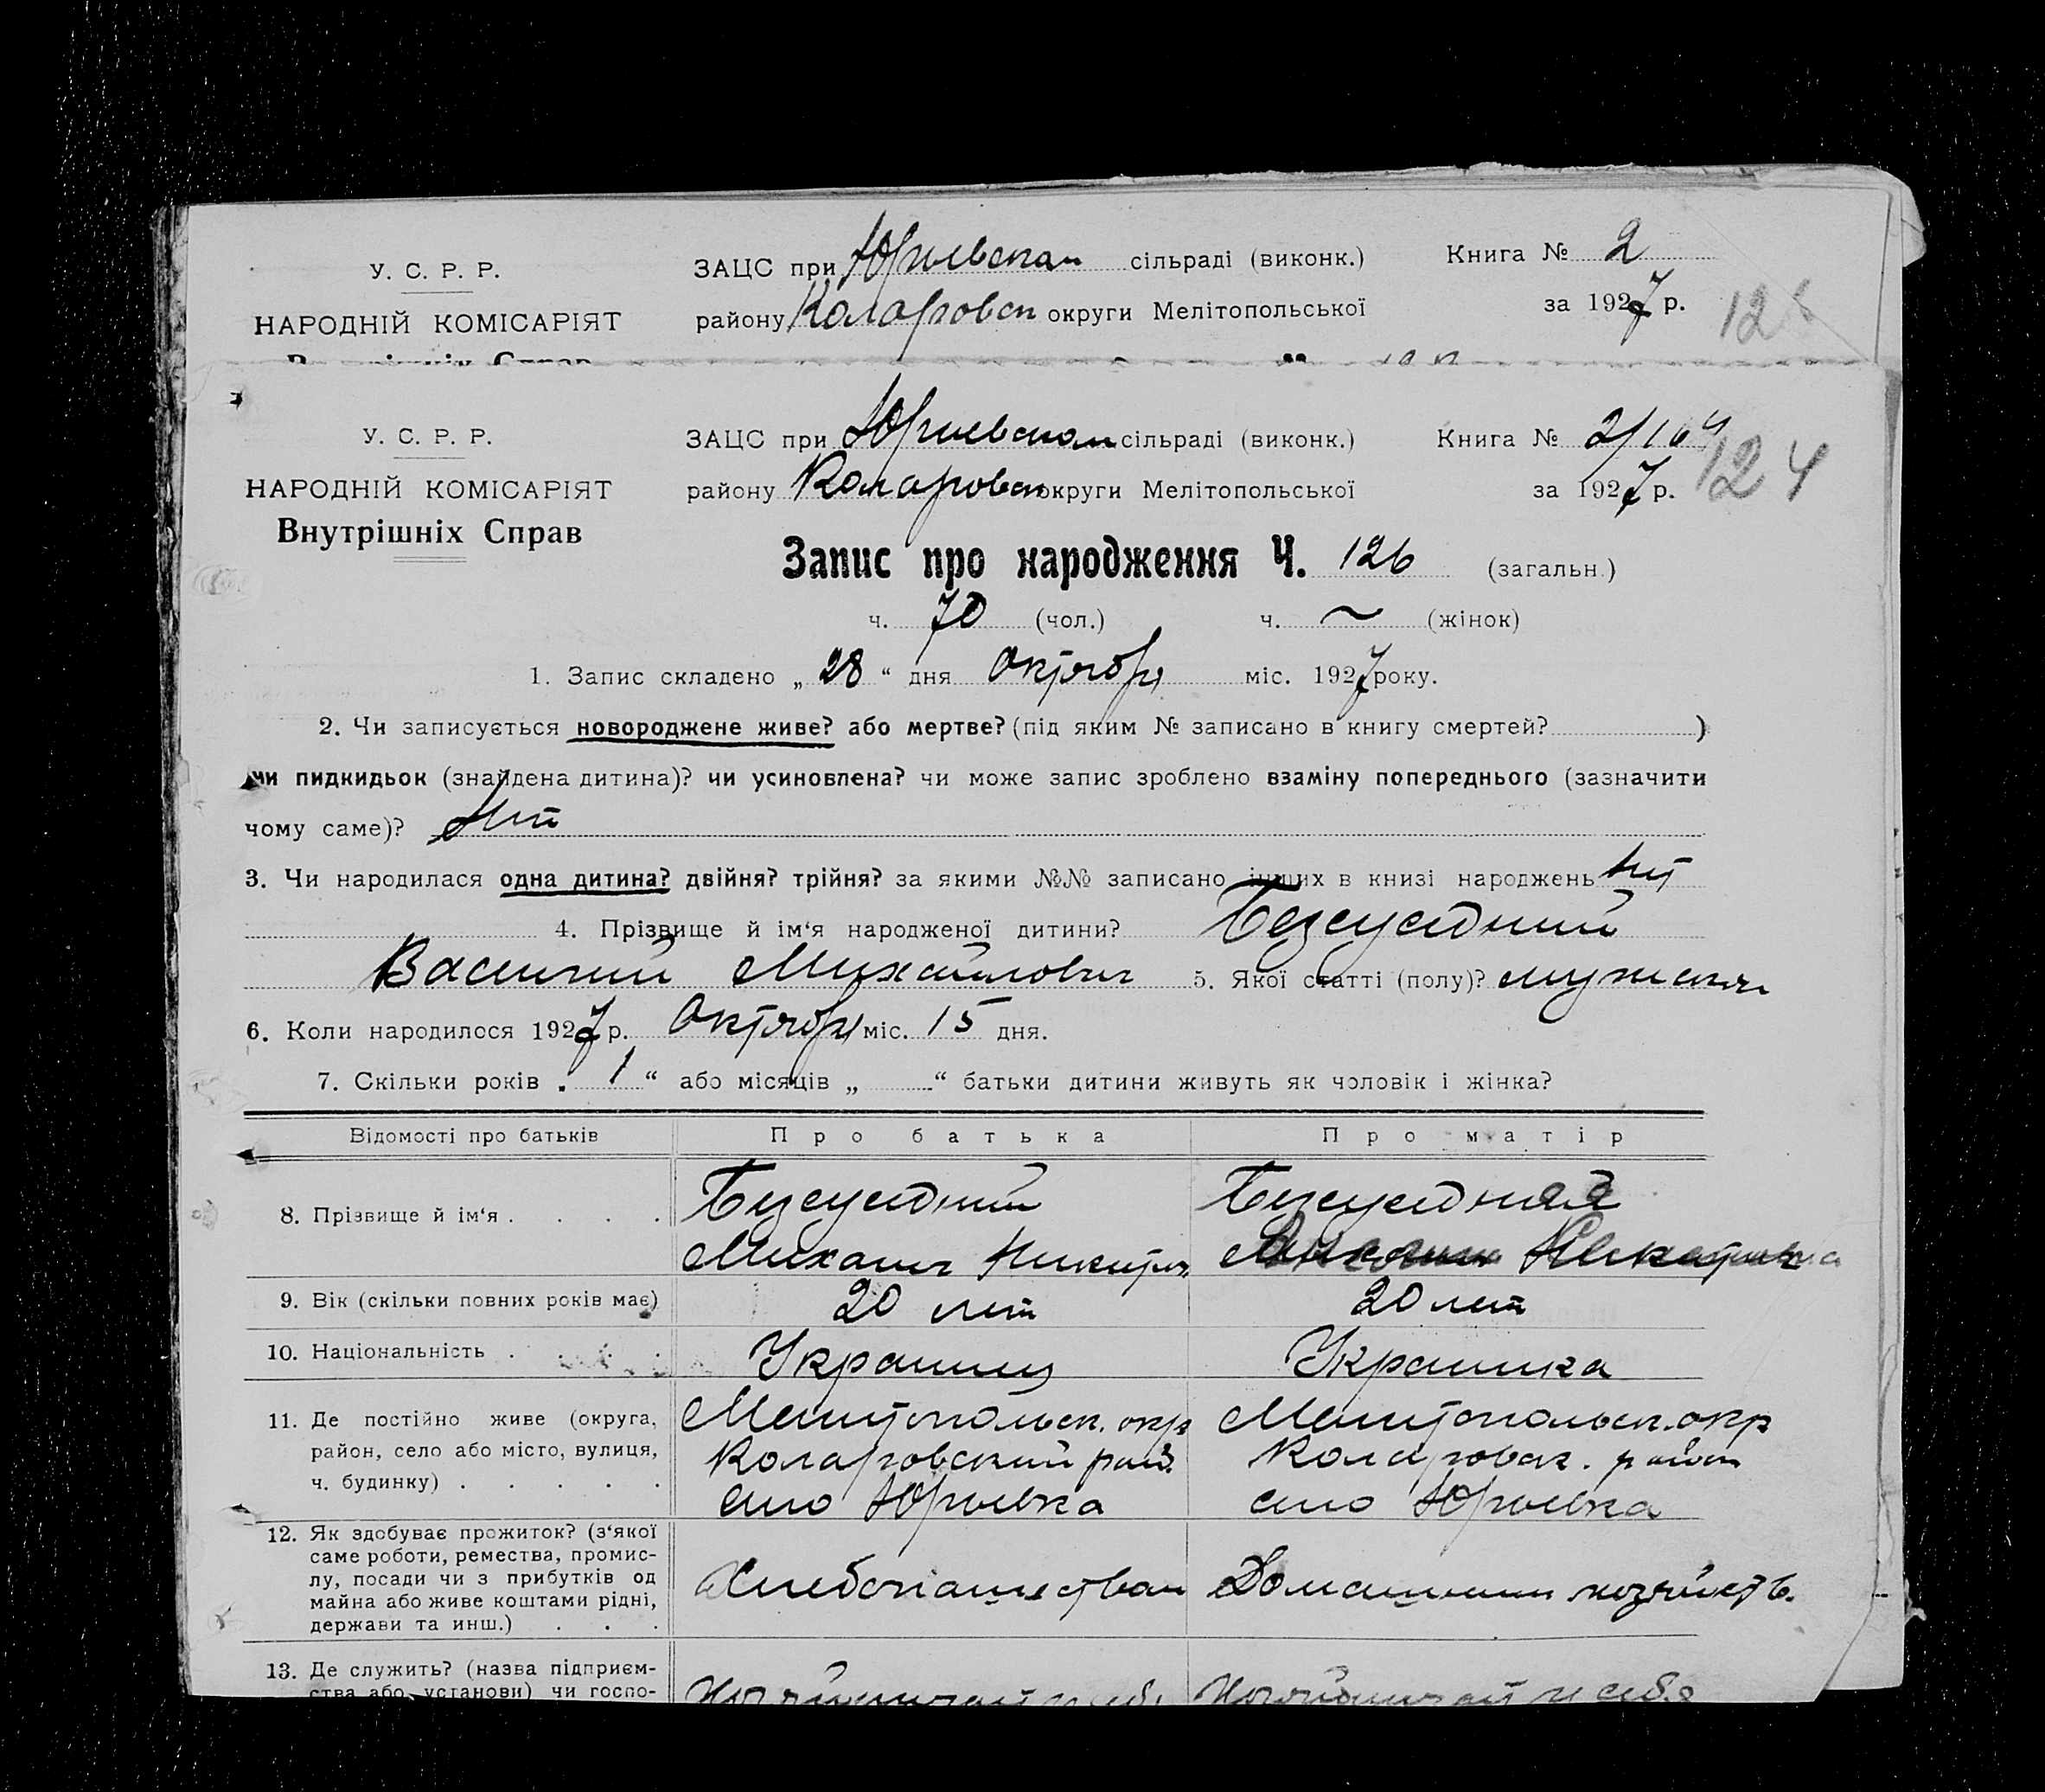 У. С. Р. Р.
НАРОДНІЙ КОМІСАРІЯТ
ЗАЦС при Юрьевском сільраді (виконк.)
району Коларовск округи Мелітопольської
Книга № 2
за 1927 р.
12
У. С. Р. Р.
НАРОДНІЙ КОМІСАРІЯТ
Внутрішніх Справ
ЗАЦС при Юрьевском сільраді (виконк.)
району Коларовск округи Мелітопольської
Книга № 2/
за 1927 р.
124
Запис про народження Ч. 126 (загальн.)
ч. 70 (чол.) ч. ~ (жінок)
1. Запис складено „ 28 “ дня Октября міс. 1927 року.
2. Чи записується новороджене живе? або мертве? (під яким № записано в книгу смертей? )
чи пидкидьок (знайдена дитина)? чи усиновлена? чи може запис зроблено взаміну попереднього (зазначити
чому саме)? Нет
3. Чи народилася одна дитина? двійня? трійня? за якими №№ записано інших в книзі народжень нет
4. Прізвище й ім‘я народженої дитини? Безсуедний
Василий Михайлович 5. Якої статті (полу)? мужск
6. Коли народилося 1927 р. Октября міс. 15 дня.
7. Скільки років „ 1 “ або місяців „ “ батьки дитини живуть як чоловік і жінка?
Відомості про батьків Про батька Про матір
8. Прізвище й ім‘я . . . .
Безсуедний
Михаил Никит.
Безсуедная
9. Вік (скільки повних років має) 20 лет 20 лет
10. Національність . . . . Украинец Украинка
11. Де постійно живе (округа,
район, село або місто, вулиця,
ч. будинку) . . . . .
Мелитопольск. окр
Коларовский рай.
село Юрьевка
Мелитопольск. окр
Коларовск. район
село Юрьевка
12. Як здобуває прожиток? (з‘якої
саме роботи, ремества, промис-
лу, посади чи з прибутків од
майна або живе коштами рідні,
держави та инш.) . . .
Хлебопашеством
Домашним хозяйств.
13. Де служить? (назва підприєм-
ства або установи) чи госпо-